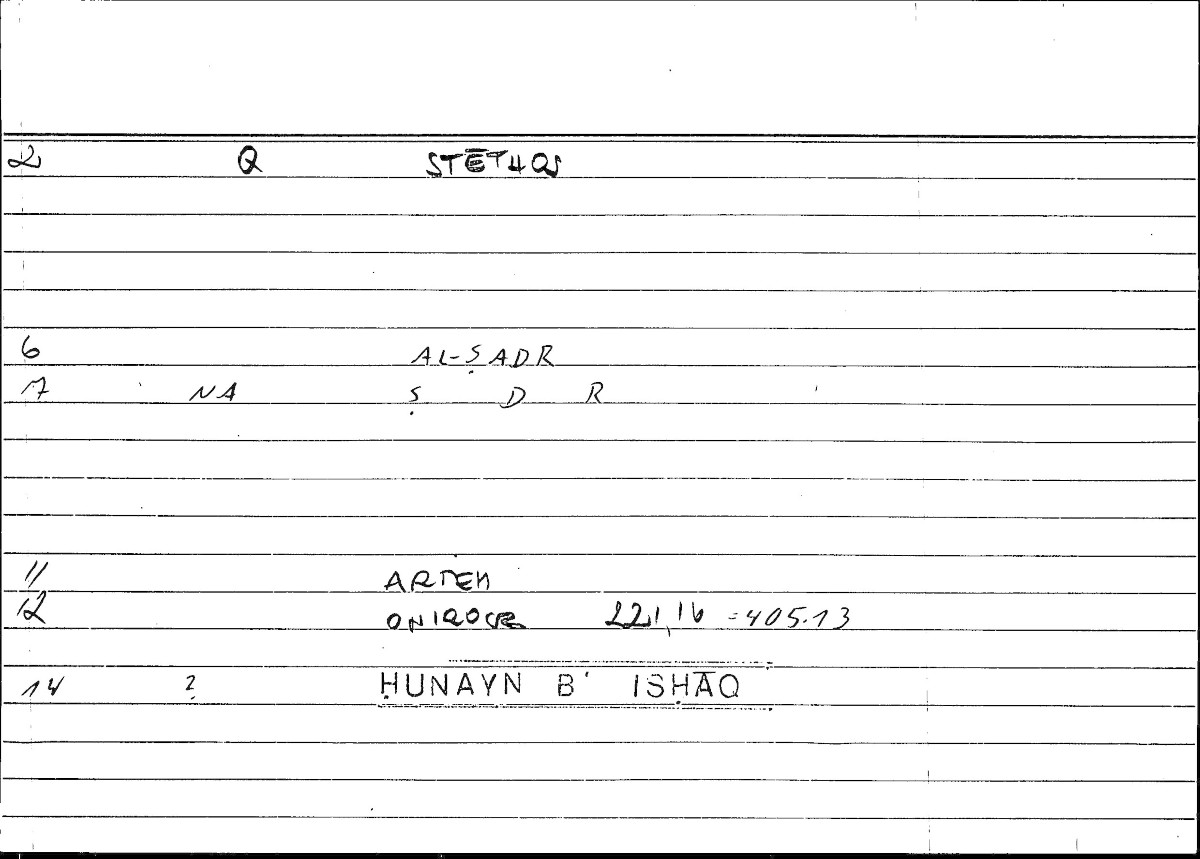 2 Q STĒTHOS
6 AL-ṢADR
7 NA Ṣ D R
11 ARTEM
12 ONIROCR 221,16 =405.13
14 2 ḤUNAYN B' ISḤĀQ